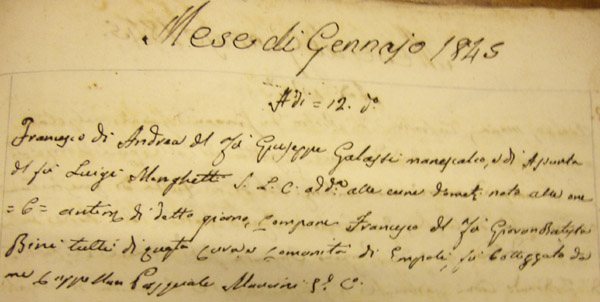 Mese di Gennajo 1845
A di = 12. do
Francesco di Andrea del fu Giuseppe Galassi manescalco, e di Assunta
del fu Luigi Menghetti S. L. C. add.o alle cure domest: nato alle ore
= 6 = antim. di detto giorno, Compare Francesco del fu Giovan Batista
Bini tutti di questa Cura e Comunità di Empoli, fu battezzato da
me Cappellan Pasquale Mancini